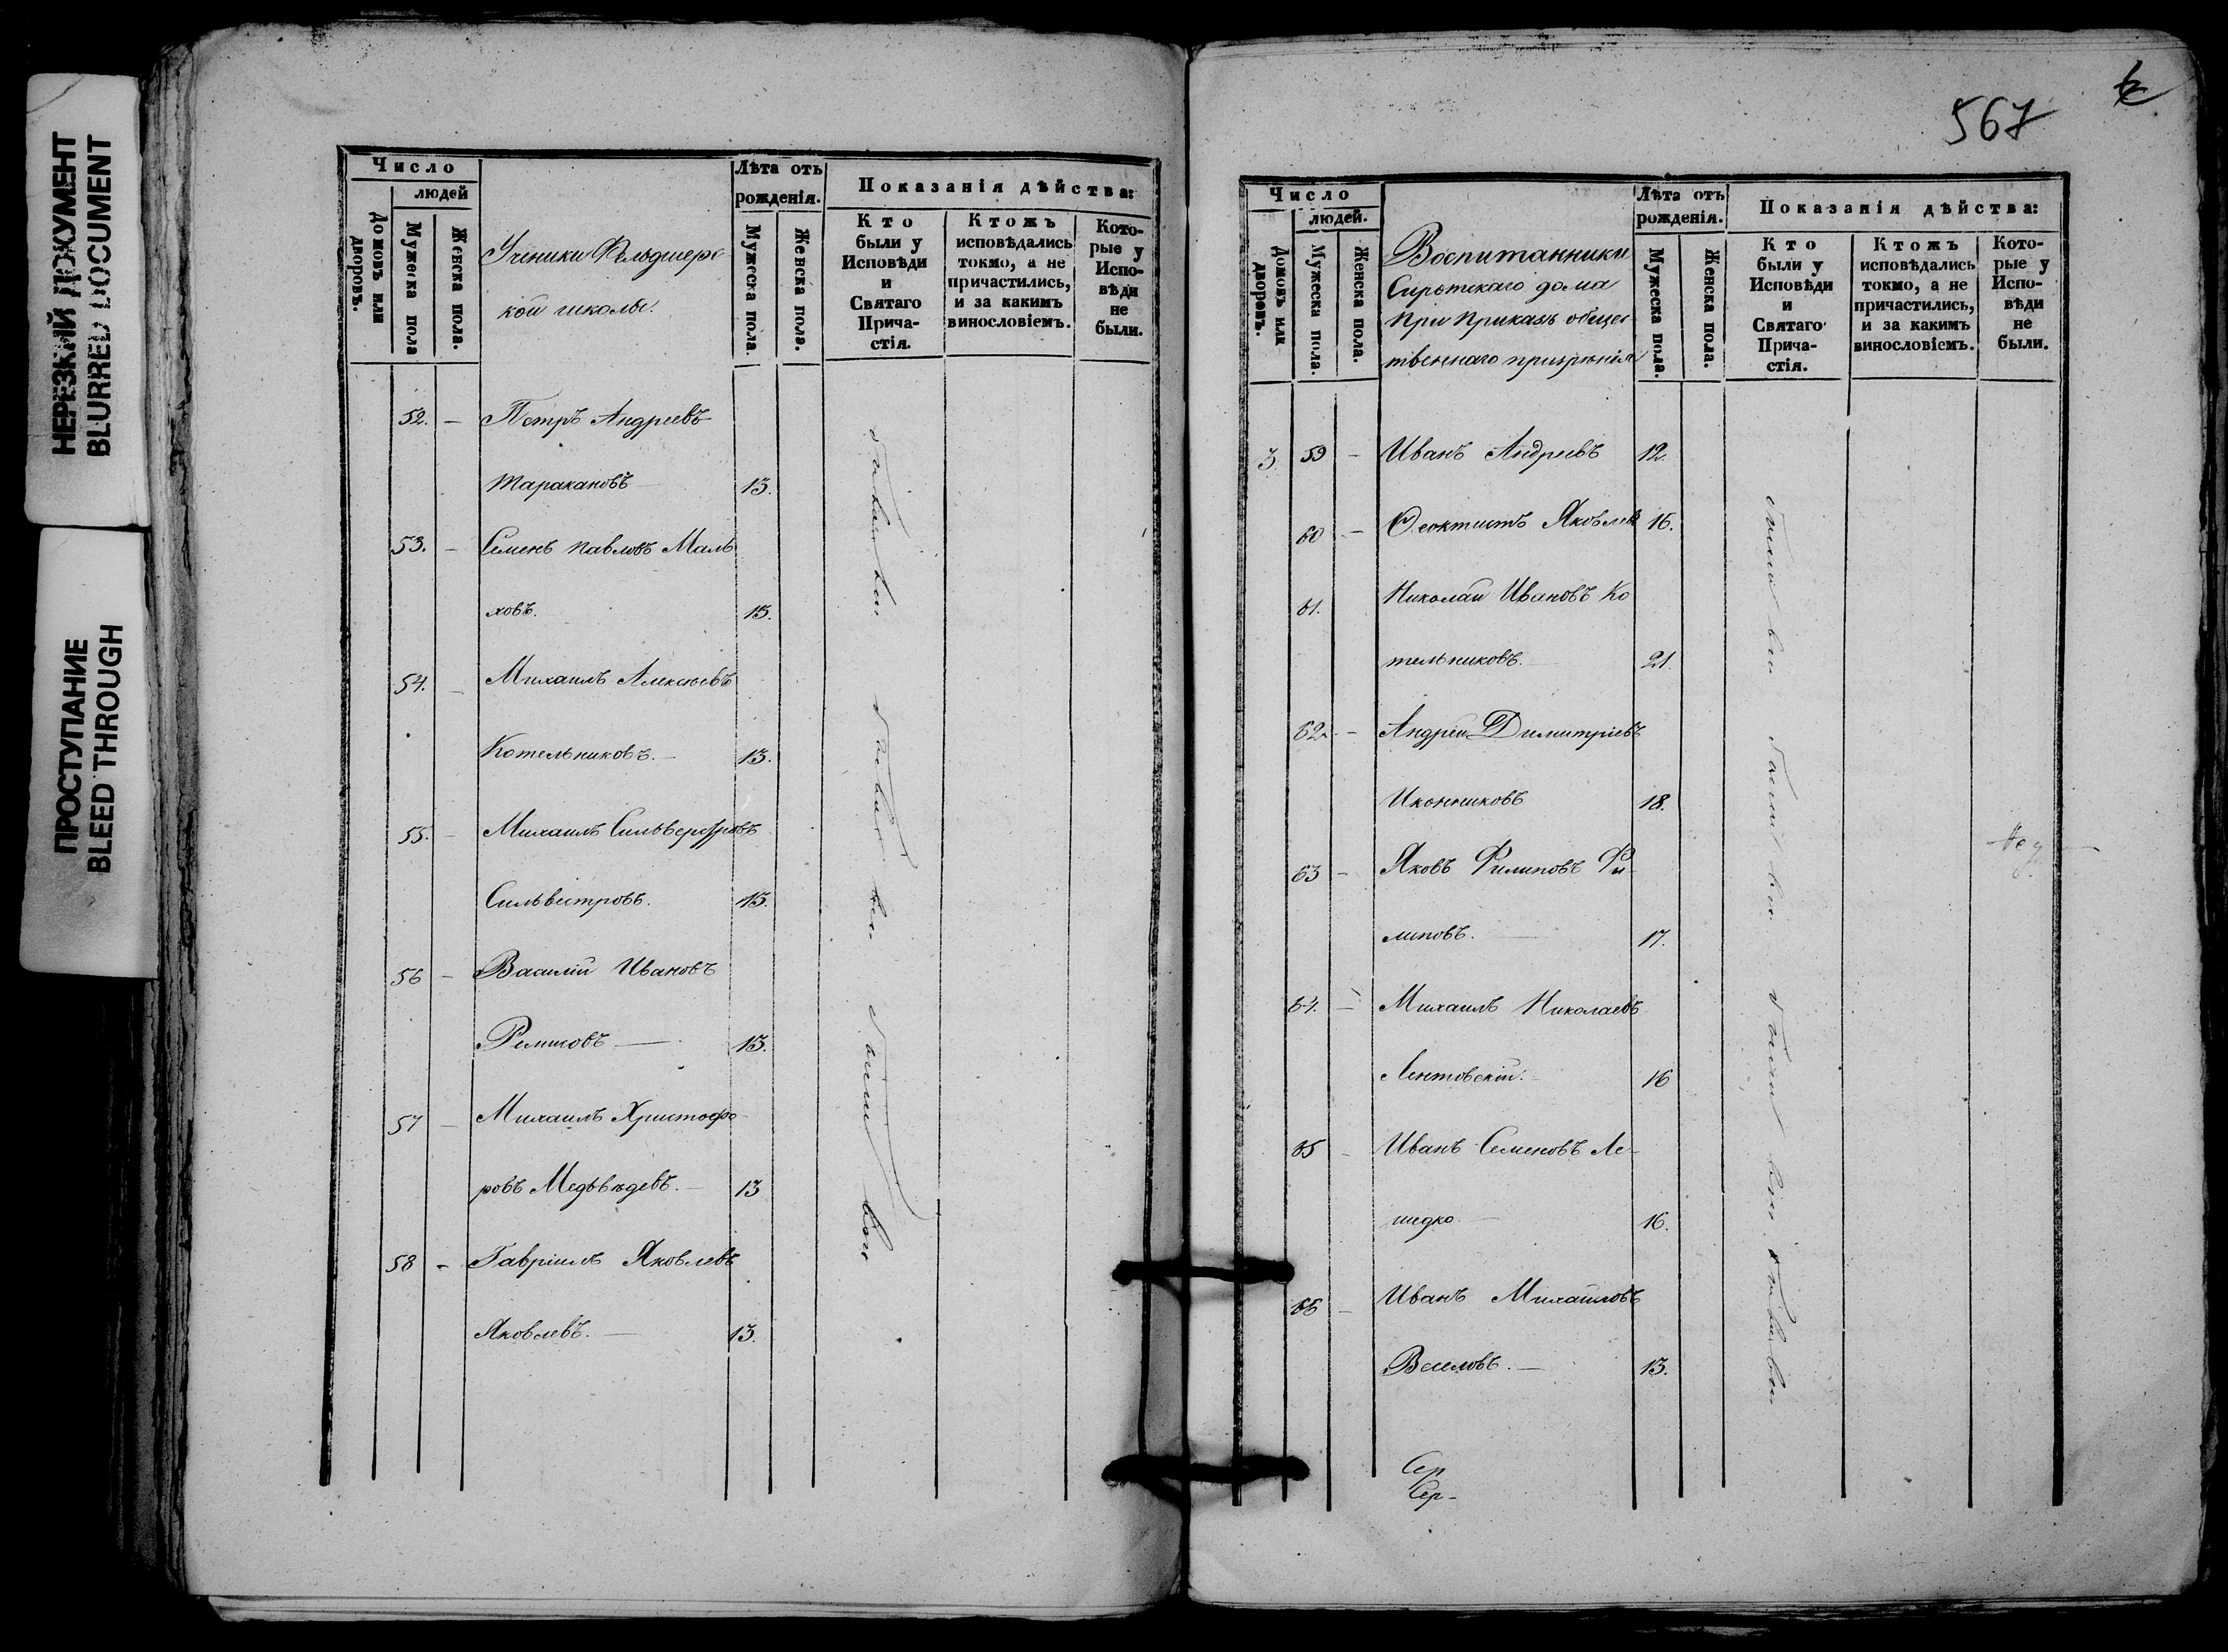 НЕРЕЗКИЙ ДОКУМЕНТ
BLURRED DOCUMENT
ПРОСТУПАНИЕ
BLEED THROUGH
Число
людей
Домовъ или дворовъ.
Мужеска пола
Женска пола.
Ученики Фельдшерс
кой школы.
Лѣта отъ
рожденія.
Мужеска пола.
Женска пола.
Показанія дѣйства:
Кто
были у
Исповѣди
и
Святаго
Прича-
стія.
Ктожъ
исповѣдались
токмо, а не
причастились,
и за какимъ
винословіемъ.
Кото-
рые у
Испо-
вѣди
не
были.
52. — Петръ Андреевъ
Таракановъ — 13.
53. — Семенъ Павловъ Маль
ховъ. 13.
54. — Михаилъ Алексѣевъ
Котельниковъ. — 13.
55. — Михаилъ Сильверстровъ
Сильвестровъ. 13.
56 — Василій Ивановъ
13.
57 — Михаилъ Христофо
ровъ Медьвѣдевъ. — 13
58 — Гавріилъ Яковлевъ
Яковлевъ. — 13.
были были были
567
Число
людей.
Домовъ или дворовъ.
Мужеска пола.
Женска пола.
Воспитанники
Сиротскаго дома
при Приказѣ общес
твеннаго призрѣнія
Лѣта отъ
рожденія.
Мужеска пола.
Женска пола.
Показанія дѣйства:
Кто
были у
Исповѣди
и
Святаго
Прича-
стія.
Ктожъ
исповѣдались
токмо, а не
причастились,
и за какимъ
винословіемъ.
Кото-
рые у
Испо-
вѣди
не
были.
3. 59 — Иванъ Андреевъ 12.
60 — Феоктистъ Яковлев 16.
61. Николай Ивановъ Ко
тельниковъ. — 21.
62. — Андрей Димитріевъ
Иконниковъ 18.
63 — Яковъ Филиповъ Фи-
липовъ. — 17.
64. — Михаилъ Николаевъ
Лентовскій. — 16
65 — Иванъ Семеновъ Ле-
шедко. — 16.
66 — Иванъ Михаиловъ
Веселовъ. — 13.
были были были были
Сер
Сер-